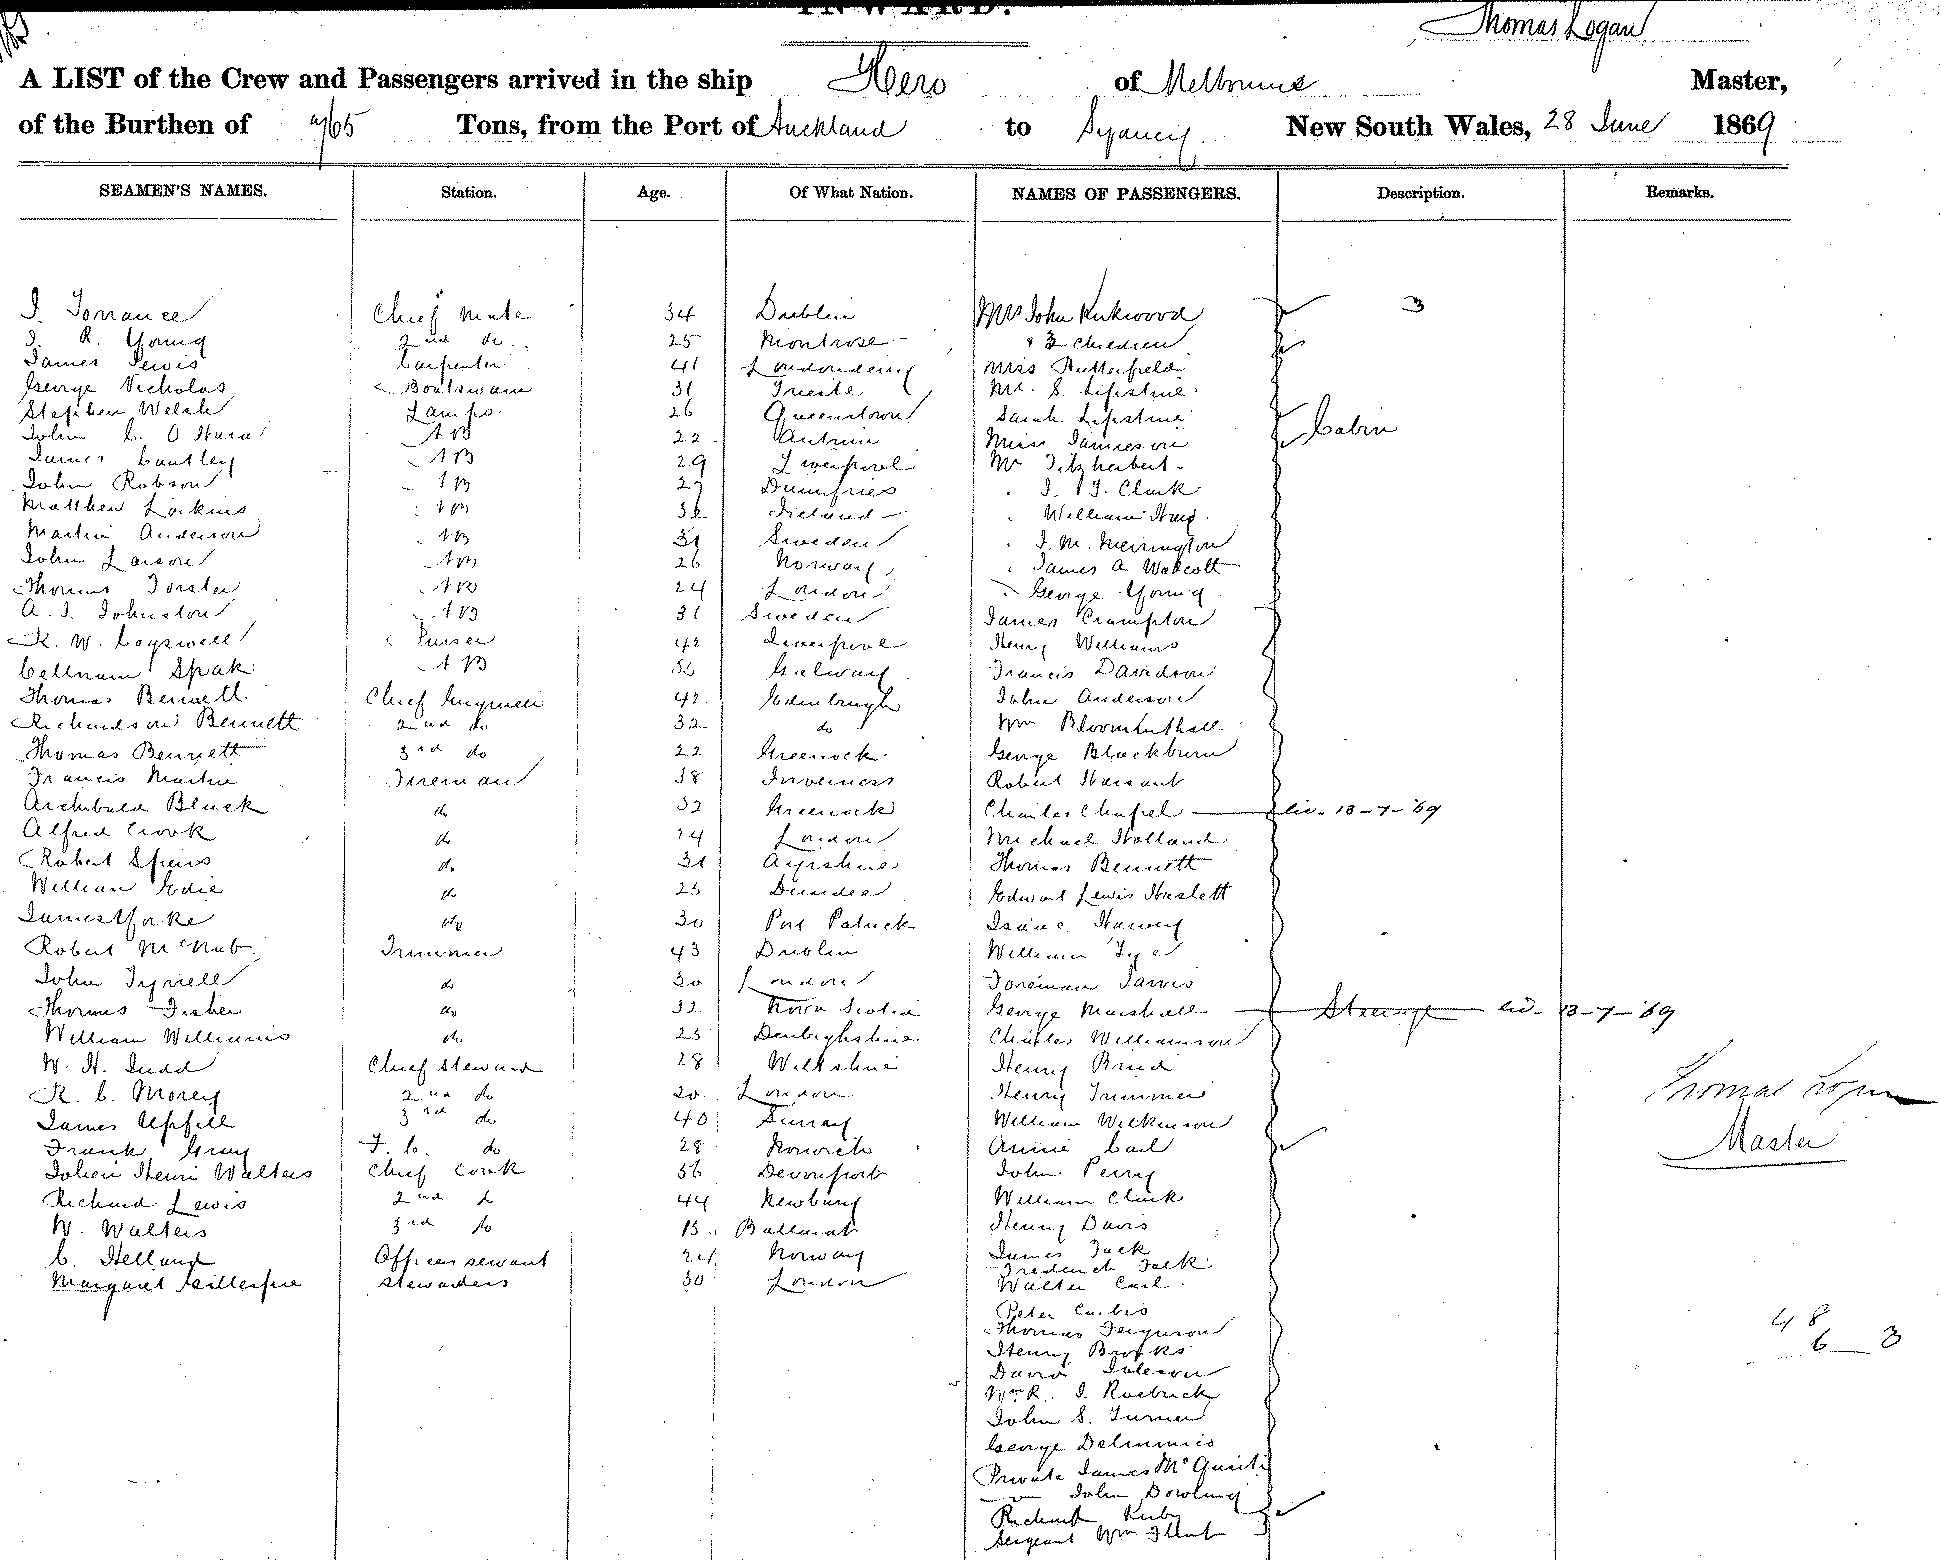 INWARD.
Thomas Logan
A LIST of the Crew and Passengers arrived in the ship Hero of Melbourne Master,
of the Burthen of Tons, from the Port of Auckland to Sydney New South Wales, 28 June 1869
SEAMEN'S NAMES. Station. Age. Of What Nation. NAMES OF PASSENGERS. Description. Remarks.
J. Torrance Chief Mate 34 Dublin Mrs John Kirkwood 3
J. R. Young 2nd do 25 Montrose & 3 children
James Lewis Carpenter 41 Londonderry Miss Butterfield
George Nicholas Boatswain 31 Trieste Mr. S. Lipstine
Stephen Welsh Lamps 26 Queenstown Sarah Lipstine
John C. O Hara AB 22 Antrim Miss Jamieson Cabin
James Cantley AB 29 Liverpool Mr Fitzherbert
John Robson AB 27 Dumfries J. J. Clark
Matthew Larkins AB Ireland William
Martin Anderson AB 31 Sweden J. M. Merrington
John Larson AB 26 Norway James A Walcott
Thomas Forster AB 24 London George Young
A. J. Johnston AB 31 Sweden James Crampton
R. W. Cogswell Purser 42 Liverpool Henry Williams
Spak AB Galway Francis Davidson
Thomas Bennett Chief Engineer 42 Edinburgh John Anderson
Richardson Bennett 2nd do 32 do Wm Bloomenthall
Thomas Bennett 3rd do 22 Greenock George Blackburn
Francis Martin Fireman 38 Inverness Robert Hassant
Archibald Black do 32 Greenock Charles Chapel 13-7-69
Alfred Crook do 24 London Michael Holland
Robert Speirs do 31 Ayrshire Thomas Bennett
William Edie do 25 Dundee Edward Lewis Haslett
James Yorke do 30 Port Patrick Isaac Harvey
Robert McNab Trimmer 43 Dublin William Tye
John Tyrrell do 30 London Foreman Jarvis
Thomas Fisher do 32 Nova Scotia George Marshall 13-7-69
William Williams do 25 Denbighshire Charles Williamson
W. H. Judd Chief Steward 28 Wiltshire Henry
R. C. Morey 2nd do 20 London Henry Trimmer
James Upfill 3rd do 40 Surrey William Wilkinson
Frank Gray F. C. do 28 Norwich Annie Carl
John Henri Walters Chief Cook 36 Devonport John Perry
Richard Lewis 2nd do 44 Newbury William Clark
W. Walters 3rd do 15 Ballarat Henry Davis
C. Helland Officers servant 24 Norway James Jack
Frederick Falk
Margaret Gillespie Stewardess 30 London Walter Carl
Peter
Thomas Ferguson
Henry Brooks
David
Wm R. J. Roebuck
John S. Turner
George
Private James
John Dowling
Richard Kirby
Sergeant Wm Flint
Thomas Logan
Master
48
6 3